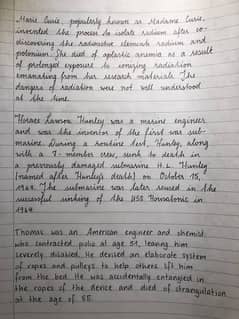 Marie Curie, popularly known as Madame Curie,
invented the process to isolate radium after co-
discovering the radioactive elements radium and
polonium. She died of aplastic anemia as a result
of prolonged exposure to ionizing radiation
emanating from her research materials. The
dangers of radiation were not well understood
at the time.
Horace Lawson Hunley was a marine engineer
and was the inventor of the first war sub-
marine. During a routine test, Hunley, along
with a 7-member crew, sunk to death in
a previously damaged submarine H.L. Hunley
(named after Hunley's death) on October 15,
The submarine was later used in the
successful sinking of the USS Housatonic in
Thomas was an American engineer and chemist,
who contracted polio at age 51, leaving him
severely disabled. He devised an elaborate system
of ropes and pulleys to help others lift him
from the bed. He was accidentally entangled in
the ropes of the device and died of strangulation
at the age of 55.